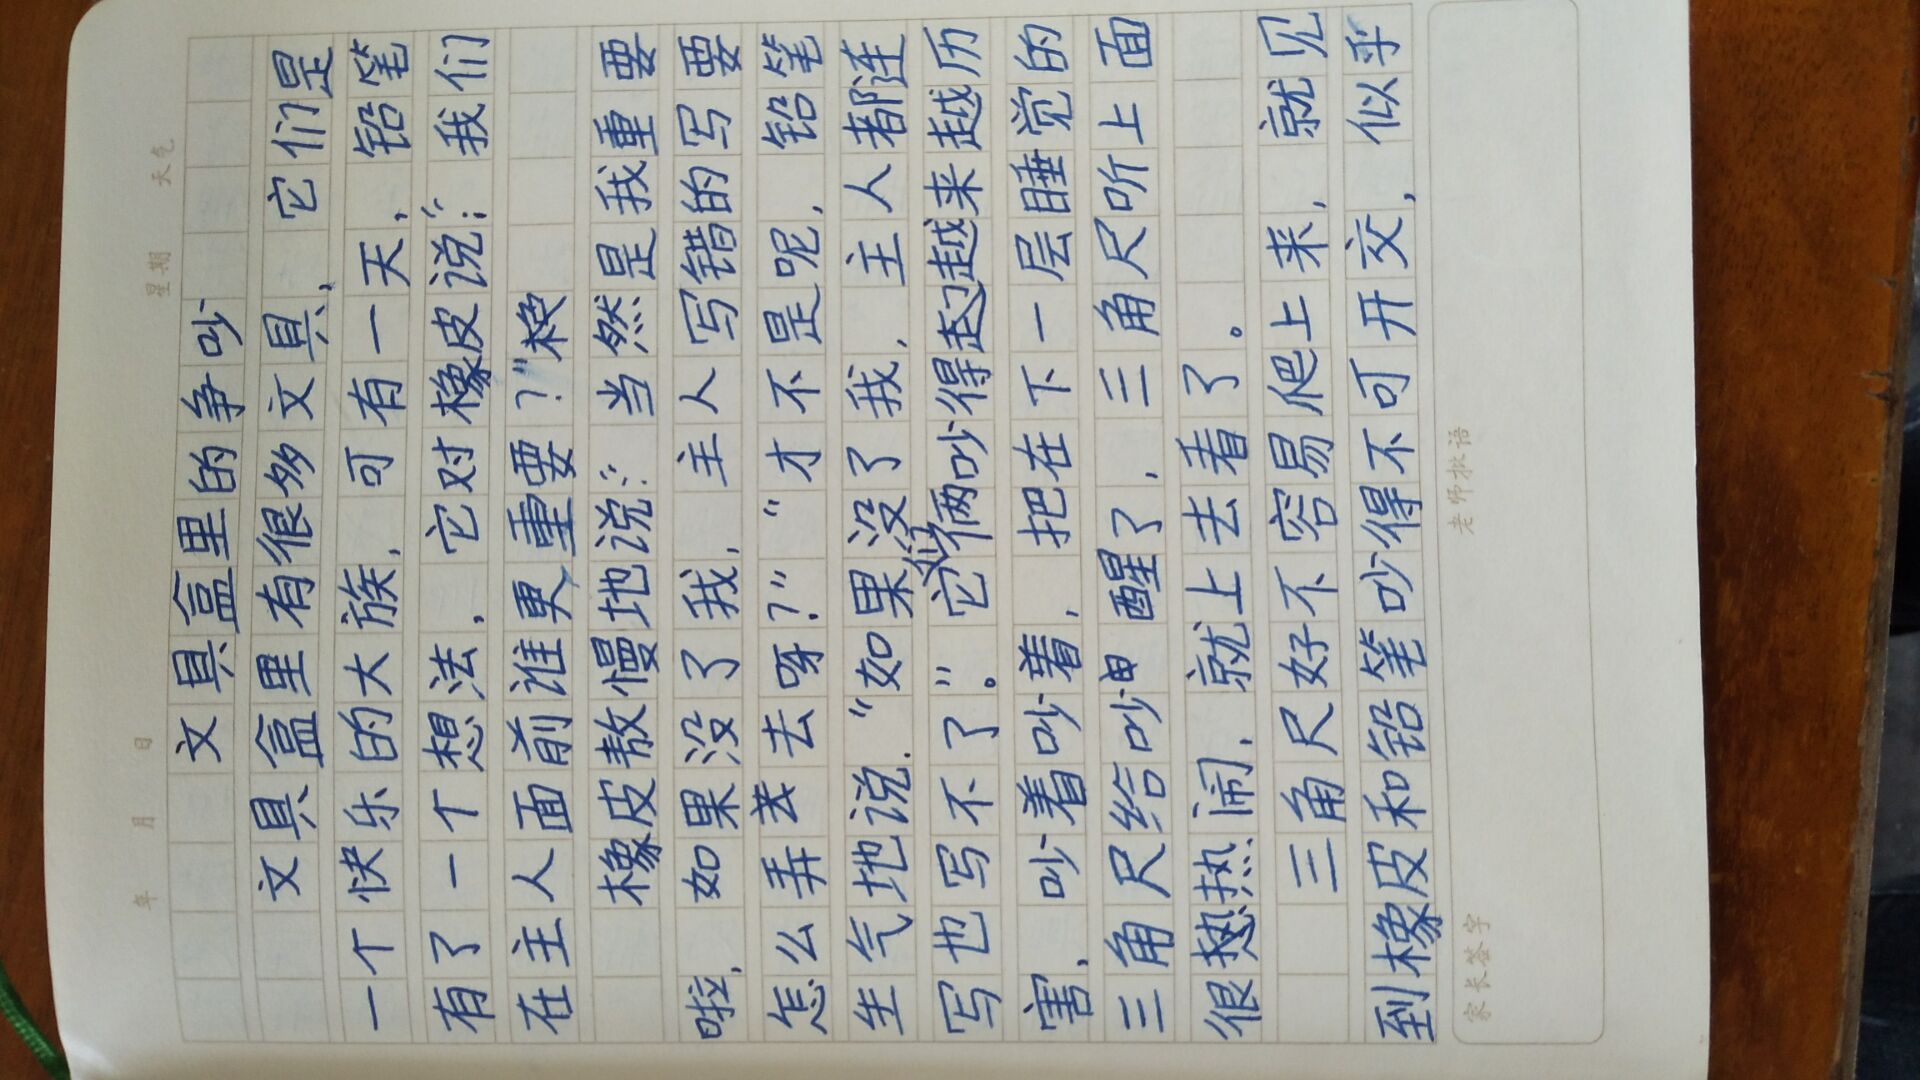 年 月 日 星期 天气
文具盒里的争吵
文具盒里有很多文具，它们是
一个快乐的大族，可有一天，铅笔
有了一个想法，它对橡皮说：“我们
在主人面前谁更重要？”
橡皮骜慢地说：“当然是我重要
啦，如果没了我，主人写错的写要
怎么弄去呀？”“才不是呢，铅笔
生气地说，“如果没了我，主人都连
写也写不了”。它俩吵得越来越历
害，吵着吵着，把在下一层睡觉的
三角尺给吵醒了，三角尺听上面
很热闹，就上去看了。
三角尺好不容易爬上来，就见
到橡皮和铅笔吵得不可开交，似乎
家长签字 老师批语